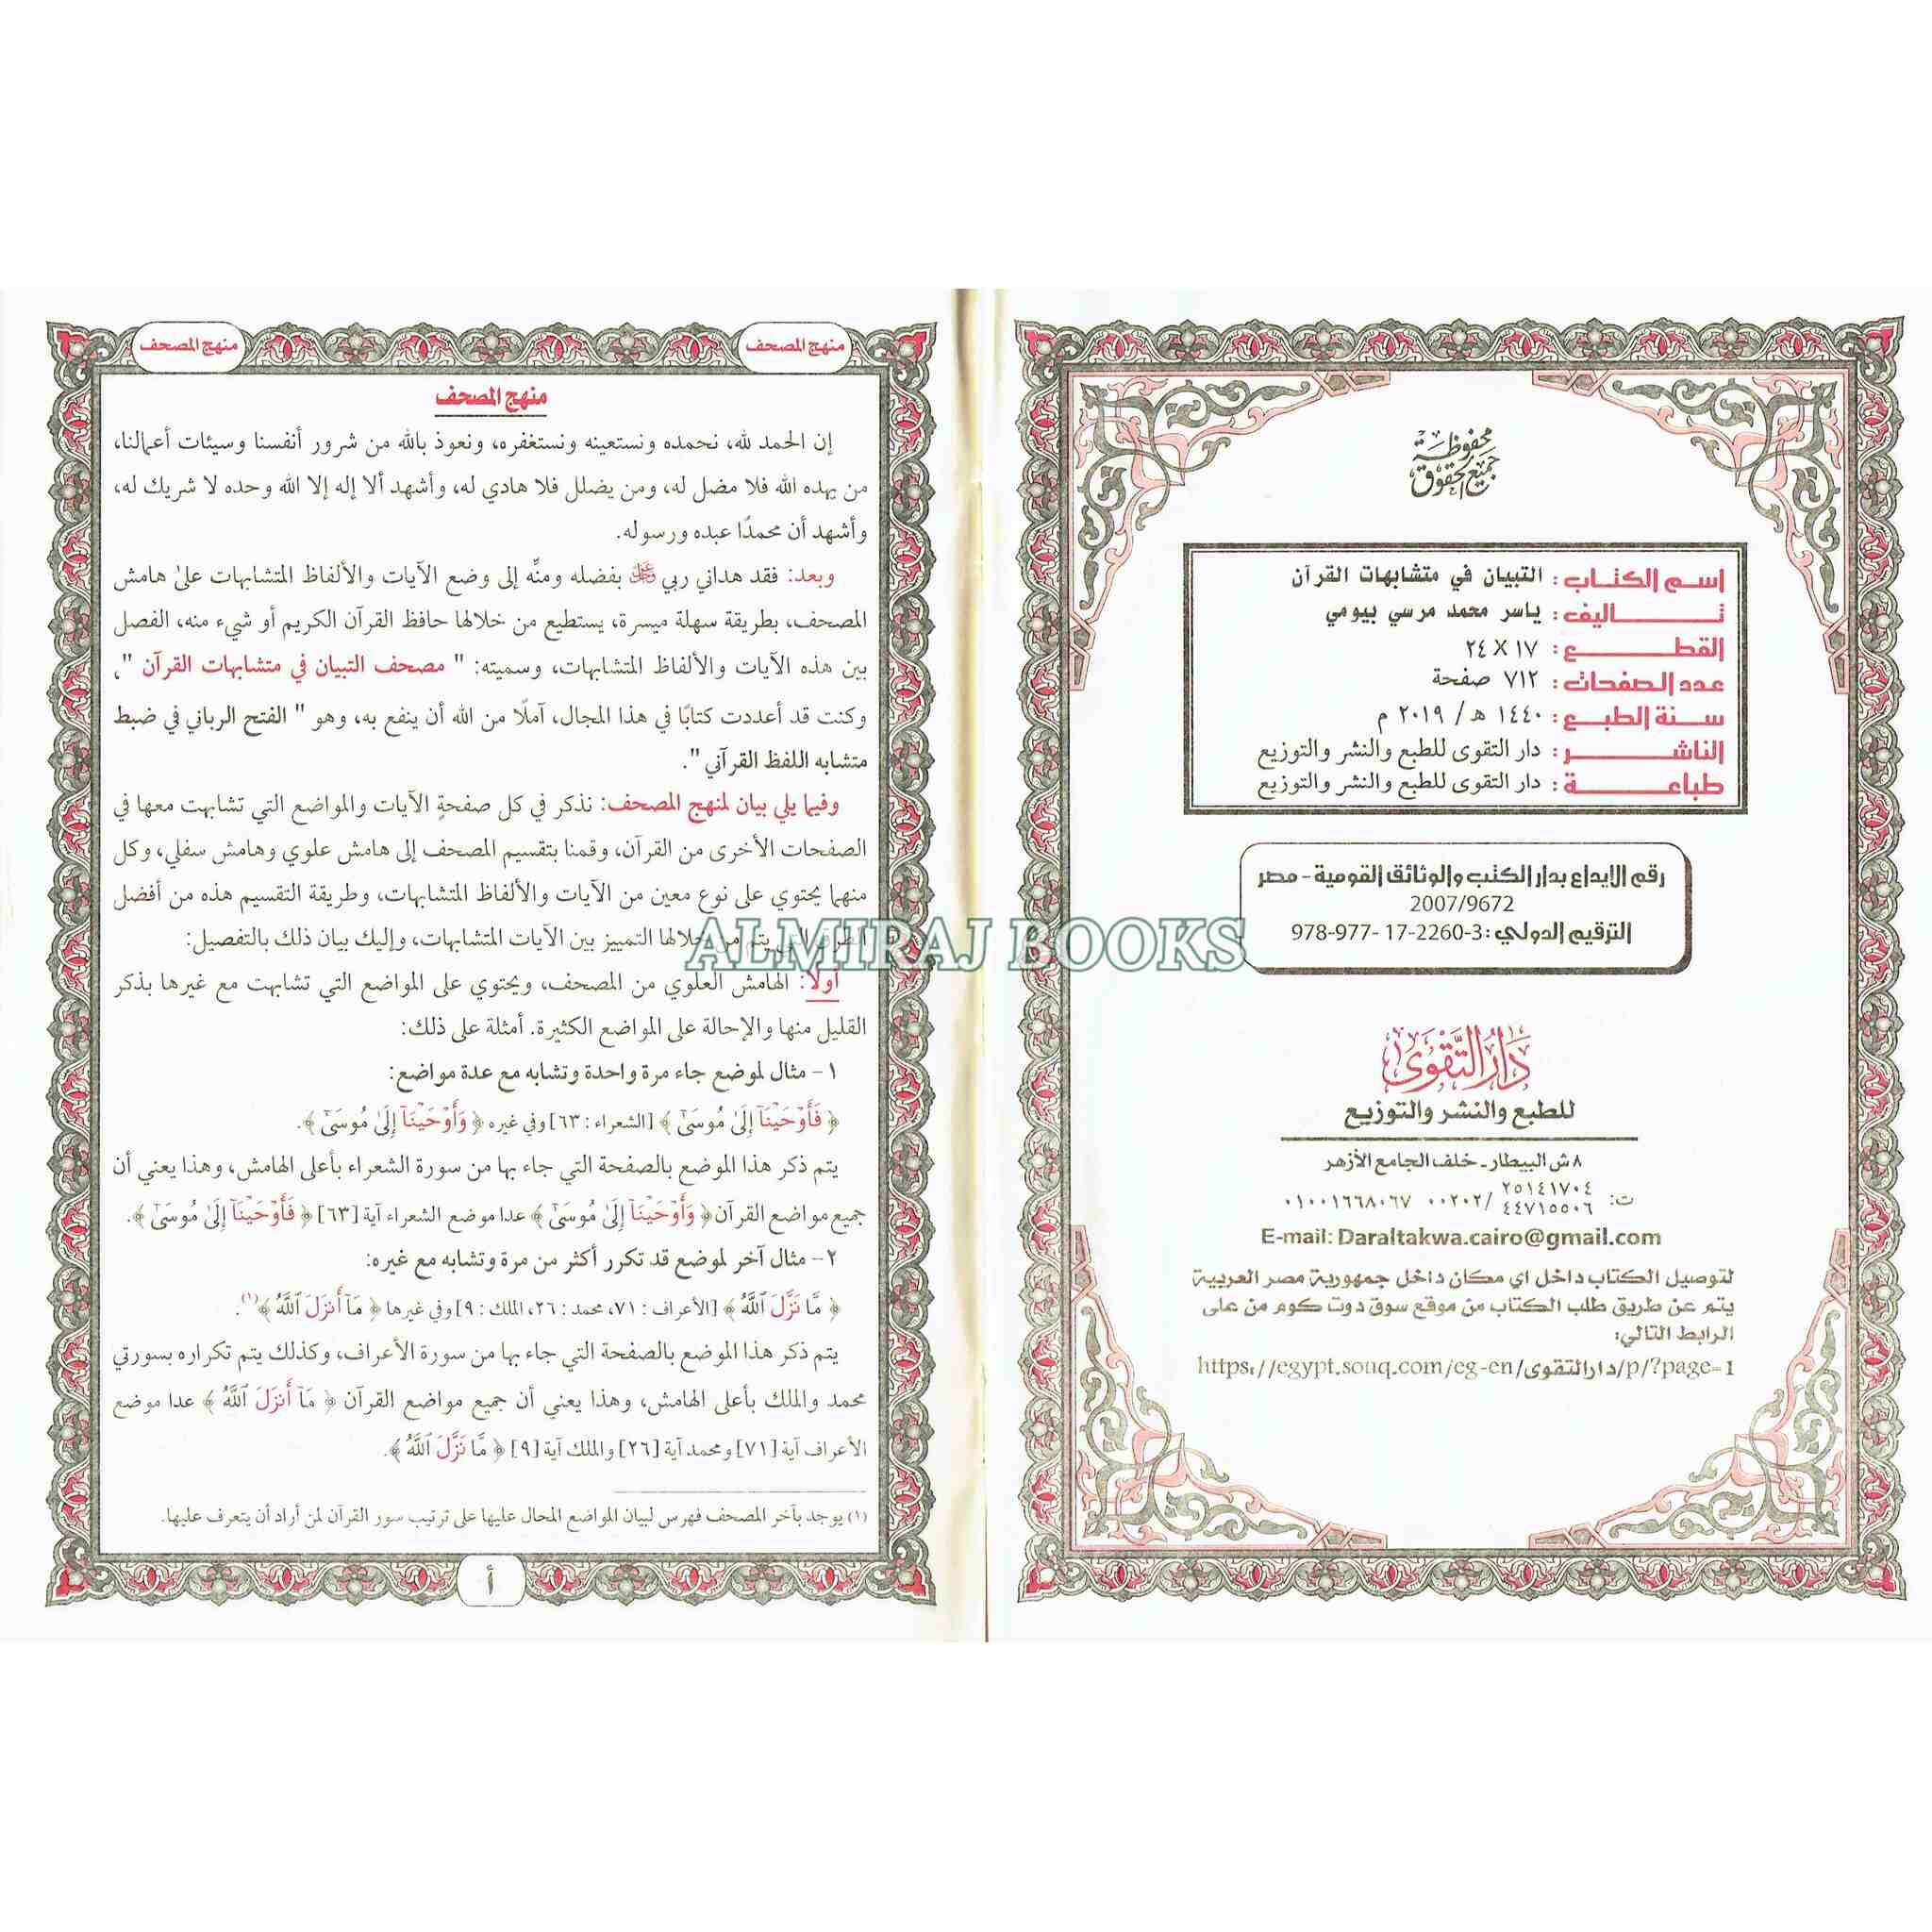 محفوظة
جميع الحقوق
اسم الكتاب : التبيان في متشابهات القرآن
تأليف : ياسر محمد مرسي بيومي
القطع : ١٧ X ٢٤
عدد الصفحات : ٧١٢ صفحة
سنة الطبع : ١٤٤٠ هـ / ٢٠١٩ م
الناشر : دار التقوى للطبع والنشر والتوزيع
طباعة : دار التقوى للطبع والنشر والتوزيع
رقم الإيداع بدار الكتب والوثائق القومية - مصر
2007/9672
الترقيم الدولي: 978-977- 17-2260-3
دَارُ التَّقْوَى
للطبع والنشر والتوزيع
٨ ش البيطار - خلف الجامع الأزهر
ت: ٢٥١٤١٧٠٤ / ٠٠٢٠٢ ٠١٠٠١٦٦٨٠٦٧
٤٤٧١٥٥٠٦
E-mail: Daraltakwa.cairo@gmail.com
لتوصيل الكتاب داخل اي مكان داخل جمهورية مصر العربية
يتم عن طريق طلب الكتاب من موقع سوق دوت كوم من على
الرابط التالي:
https://egypt.souq.com/eg-en/دارالتقوى/p/?page=1
منهج المصحف
منهج المصحف
منهج المصحف
إن الحمد لله، نحمده ونستعينه ونستغفره، ونعوذ بالله من شرور أنفسنا وسيئات أعمالنا،
من يهده الله فلا مضل له، ومن يضلل فلا هادي له، وأشهد ألا إله إلا الله وحده لا شريك له،
وأشهد أن محمدًا عبده ورسوله.
وبعد: فقد هداني ربي ﷻ بفضله ومنِّه إلى وضع الآيات والألفاظ المتشابهات علىٰ هامش
المصحف، بطريقة سهلة ميسرة، يستطيع من خلالها حافظ القرآن الكريم أو شيء منه، الفصل
بين هذه الآيات والألفاظ المتشابهات، وسميته: " مصحف التبيان في متشابهات القرآن "،
وكنت قد أعددت كتابًا في هذا المجال، آملًا من الله أن ينفع به، وهو " الفتح الرباني في ضبط
متشابه اللفظ القرآني ".
وفيما يلي بيان لمنهج المصحف: نذكر في كل صفحةٍ الآيات والمواضع التي تشابهت معها في
الصفحات الأخرى من القرآن، وقمنا بتقسيم المصحف إلى هامش علوي وهامش سفلي، وكل
منهما يحتوي على نوع معين من الآيات والألفاظ المتشابهات، وطريقة التقسيم هذه من أفضل
الطرق التي يتم من خلالها التمييز بين الآيات المتشابهات، وإليك بيان ذلك بالتفصيل:
أولًا: الهامش العلوي من المصحف، ويحتوي على المواضع التي تشابهت مع غيرها بذكر
القليل منها والإحالة على المواضع الكثيرة. أمثلة على ذلك:
١- مثال لموضع جاء مرة واحدة وتشابه مع عدة مواضع:
﴿ فَأَوْحَيْنَآ إِلَىٰ مُوسَىٰٓ ﴾ [الشعراء : ٦٣] وفي غيره ﴿ وَأَوْحَيْنَآ إِلَىٰ مُوسَىٰٓ ﴾.
يتم ذكر هذا الموضع بالصفحة التي جاء بها من سورة الشعراء بأعلى الهامش، وهذا يعني أن
جميع مواضع القرآن ﴿ وَأَوْحَيْنَآ إِلَىٰ مُوسَىٰٓ ﴾ عدا موضع الشعراء آية [٦٣] ﴿ فَأَوْحَيْنَآ إِلَىٰ مُوسَىٰٓ ﴾.
٢- مثال آخر لموضع قد تكرر أكثر من مرة وتشابه مع غيره:
﴿ مَّا نَزَّلَ ٱللَّهُ ﴾ [الأعراف : ٧١، محمد : ٢٦، الملك : ٩] وفي غيرها ﴿ مَآ أَنزَلَ ٱللَّهُ ﴾(١).
يتم ذكر هذا الموضع بالصفحة التي جاء بها من سورة الأعراف، وكذلك يتم تكراره بسورتي
محمد والملك بأعلى الهامش، وهذا يعني أن جميع مواضع القرآن ﴿ مَآ أَنزَلَ ٱللَّهُ ﴾ عدا موضع
الأعراف آية [٧١] ومحمد آية [٢٦] والملك آية [٩] ﴿ مَّا نَزَّلَ ٱللَّهُ ﴾.
(١) يوجد بآخر المصحف فهرس لبيان المواضع المحال عليها على ترتيب سور القرآن لمن أراد أن يتعرف عليها.
أ
ALMIRAJ BOOKS